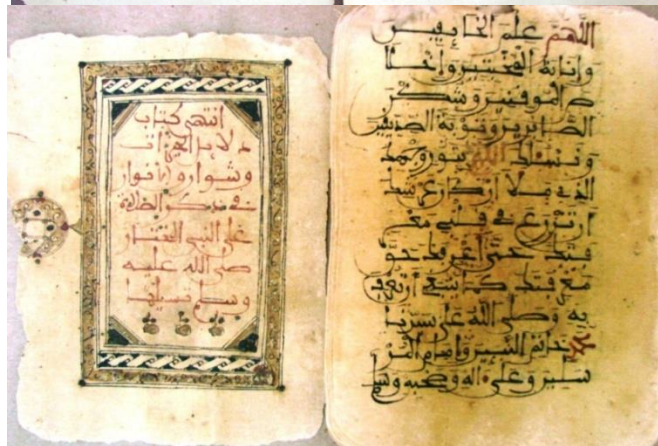 اللهم علم الخايفين
وإنابة المخبتين وإخلا
ص الموقنين وشكر
الصابرين وتوبة الصديقين
ونسئلك اللهم بنور وجهك
الذي ملا اركان عرشك
ان تزرع في قلبي معر
فتك حتى أعرفك حق
معرفتك كما ينبغي ان تعرف
به وصلى الله على سيدنا
محمد خاتم النبيين وإمام المر
سلين وعلى اله وصحبه وسلم
انتهى كتاب
دلايل الخيرات
وشوارق الانوار
في ذكر الصلاة
على النبي المختار
صلى الله عليه
وسلم تسليما